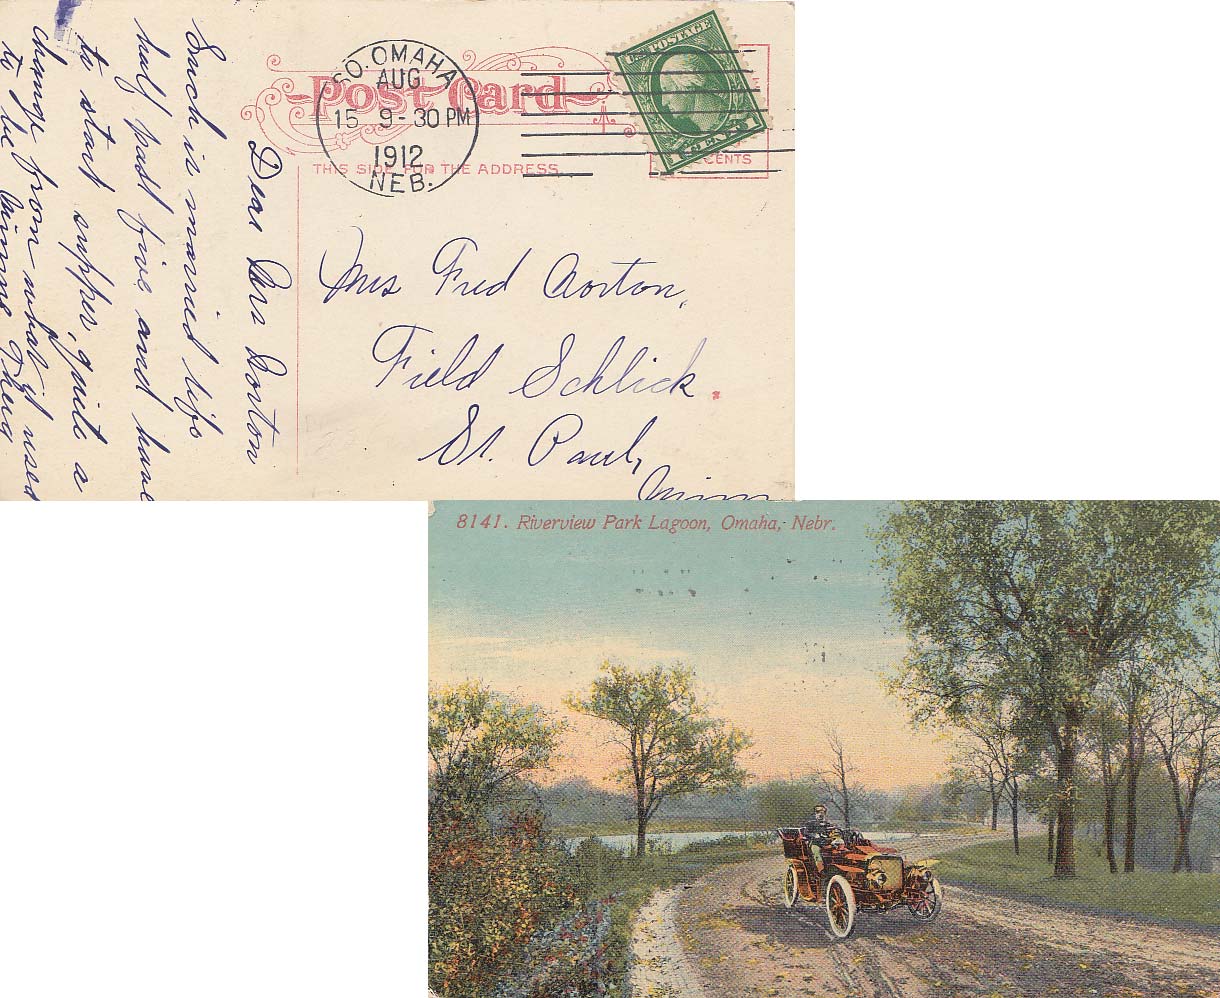 Post Card
SO. OMAHA
AUG
15 9-30 PM
1912
NEB.
U.S. POSTAGE
CENTS
THIS SIDE FOR THE ADDRESS
Mrs Fred Norton,
Field Schlick.
St. Paul,
Minn
Dear Mrs Norton
Such is married life
half past five and have
to start supper, quite a
change from what it used
to be
8141. Riverview Park Lagoon, Omaha, Nebr.